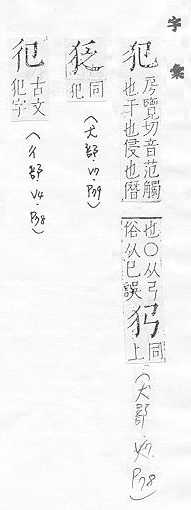 字彙
犯 房覽切音范觸
也干也侵也僭
也○从弓
俗从巳誤
同
上
(犬部·V7·P78)
同
犯
(犬部·V7·P79)
𢓉 古文
犯字
(彳部·V4·P38)